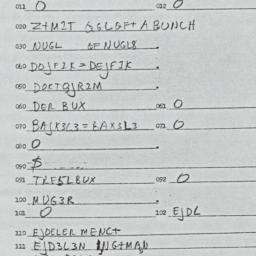 011 O 012 O
020 Z+M2T GGLGF+A BUNCH
030 NUGL GFNUGL8 .
040 DOJF2K = DEJF2K .
050 DOKTQJR2M .
060 DER BUX 061 O
070 BAJK3/3 = BAX3L3 071 O
080 O
090 $
091 TRF5LBUX 092 O
100 MUG3R .
101 O 102 EJDL
110 EJDELER MENC+
111 EJD3L3N NG+MAN